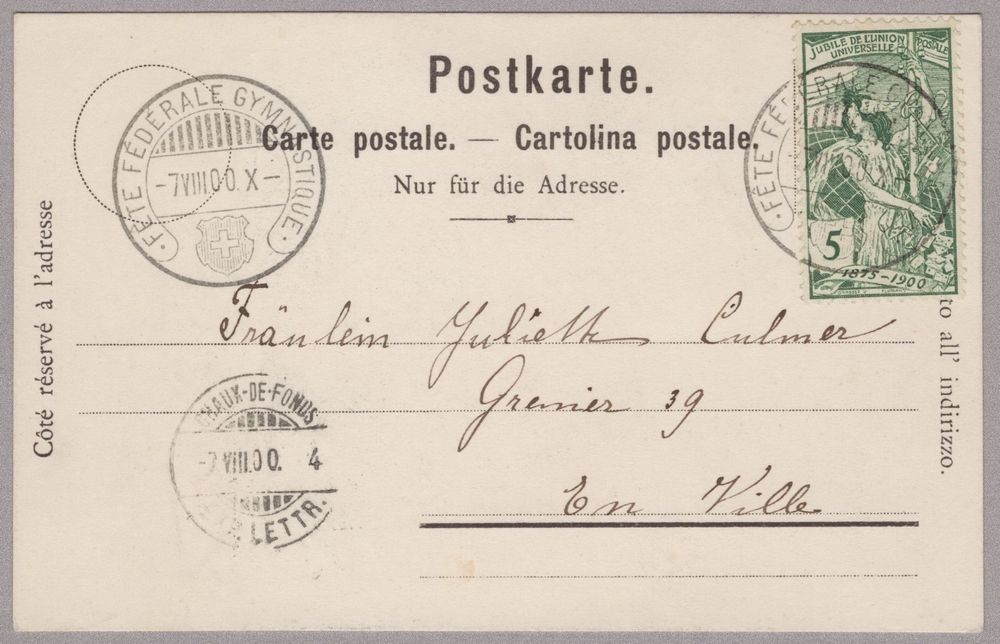 JUBILÉ DE L'UNION POSTALE
UNIVERSELLE
5
1875-1900
Postkarte.
Carte postale. — Cartolina postale.
Nur für die Adresse.
FÊTE FÉDÉRALE GYMNASTIQUE
-7VIII.00.X-
FÊTE FÉDÉRALE G
VIII.00.X-
Côté réservé à l'adresse
to all' indirizzo.
Fräulein Julieth Culmer
Grenier 39
En Ville
CHAUX-DE-FONDS
-7.VIII.00. 4
LETTR.